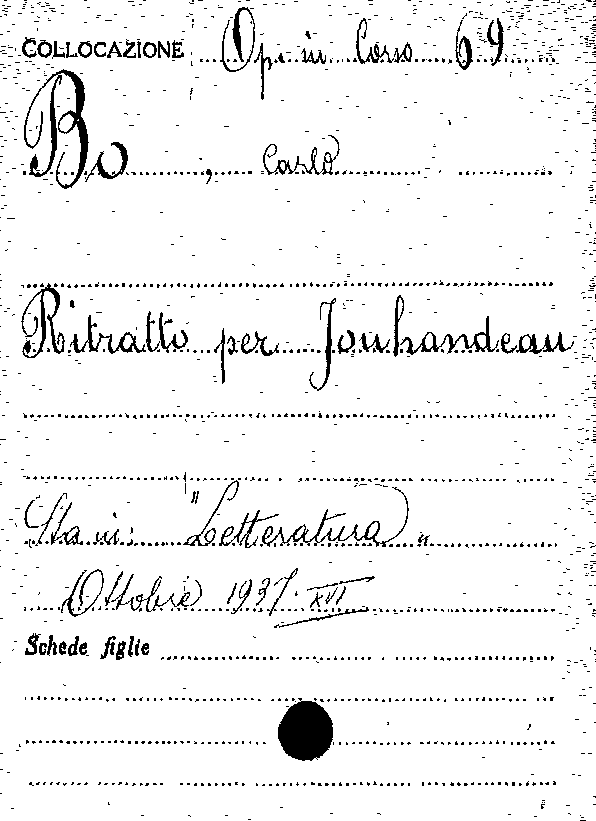 COLLOCAZIONE Op. in Corso 69
Bo, Carlo
Ritratto per Jouhandeau
Sta in: "Letteratura"
Ottobre 1937. XVI
Schede figlie